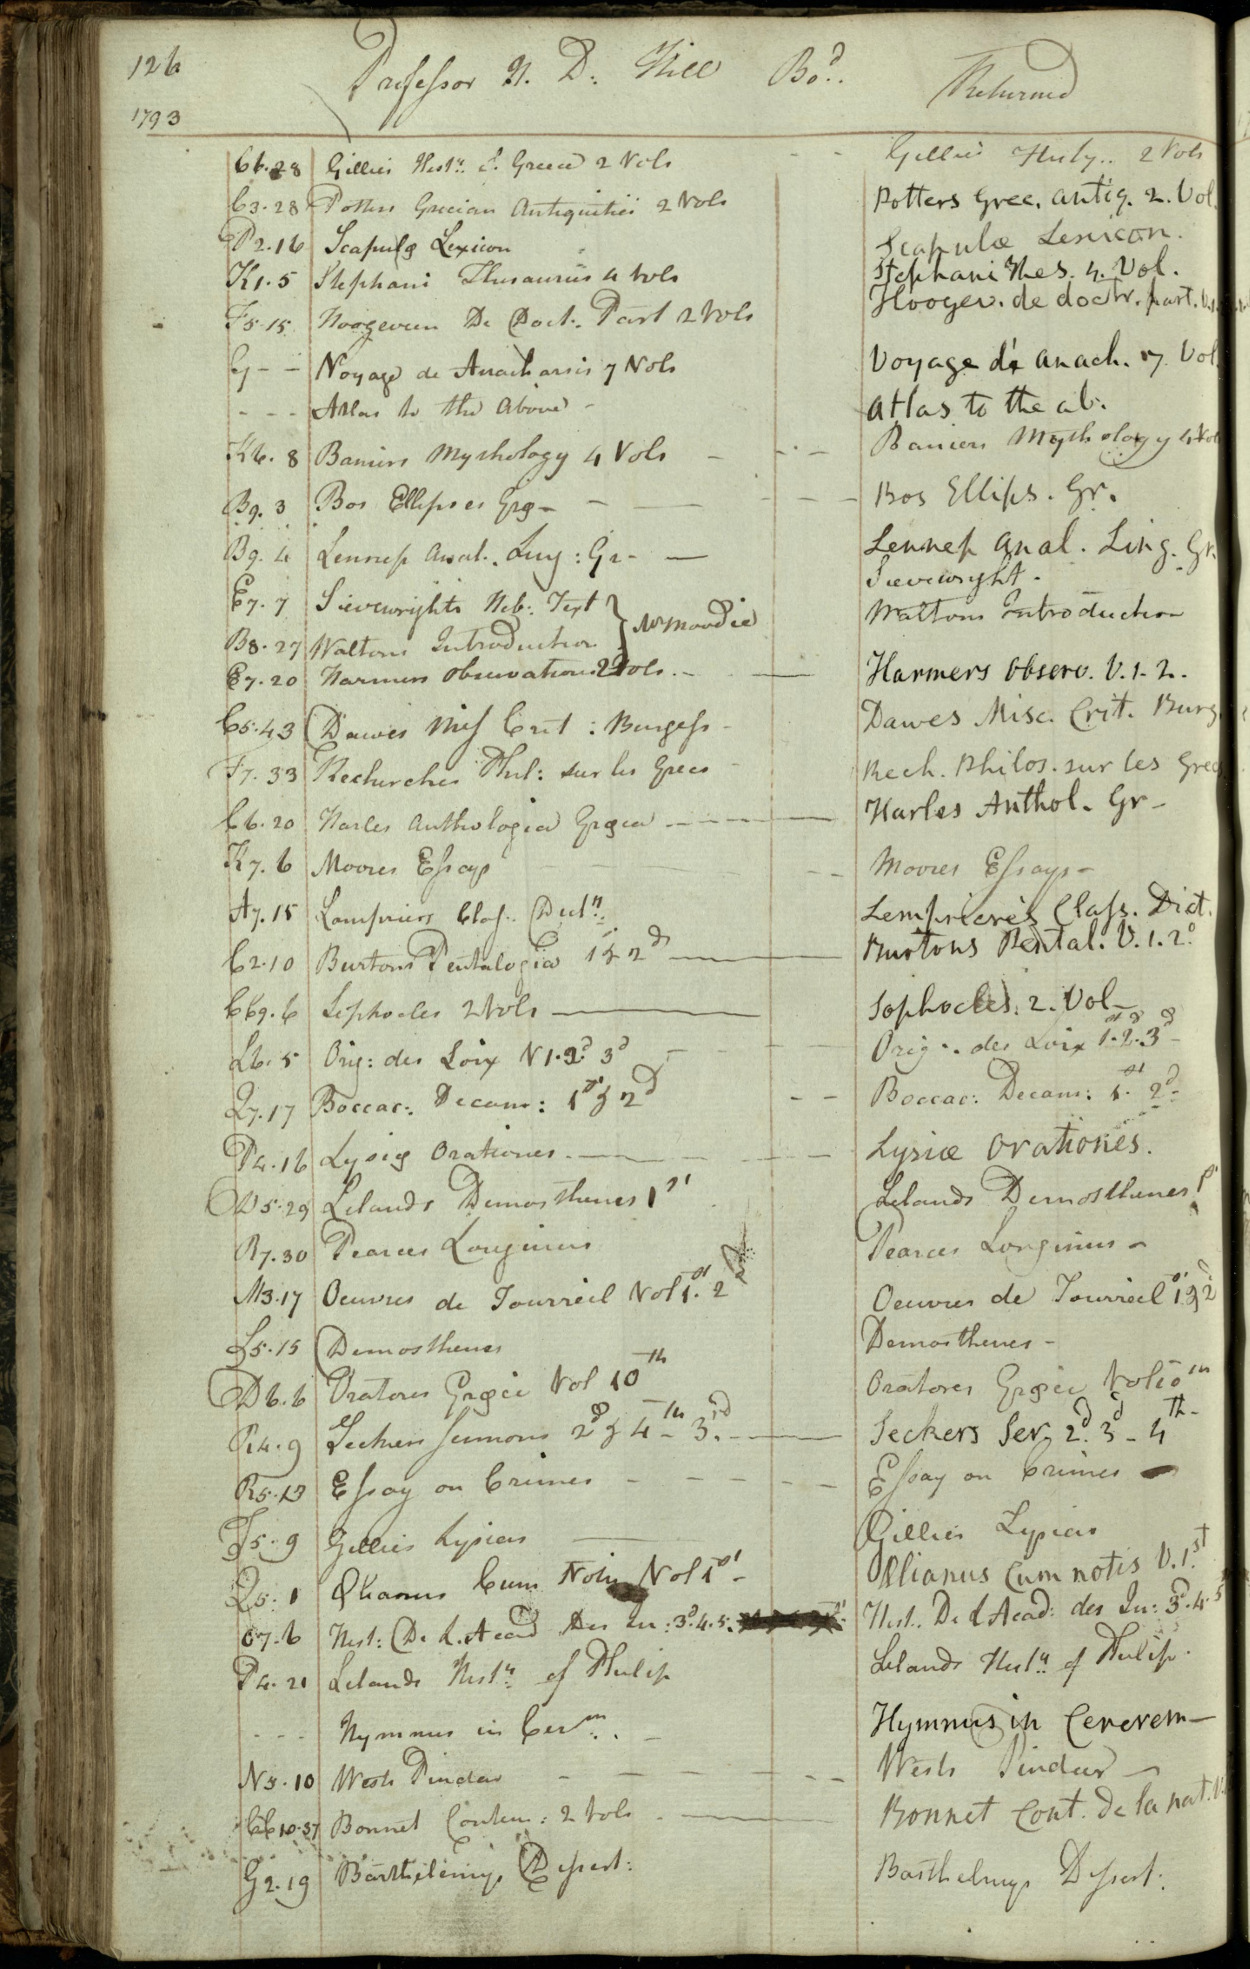 126 Professor H. D: Hill Bo.d Returned
1793
C6.28 Gillies Hist.y G. Greece 2 Vols Gillies History.. 2 Vols
C3.28 Potters Grecian Antiquities 2 Vols Potters Grec. antiq. 2. Vol.
P2.16 Scapulæ Lexicon Scapulæ Lexicon.
K1.5 Stephani Thesaurus 4 Vols Stephani Thes. 4. Vol.
F5.15 Hoogeveen De Doct. Part 2 Vols Hoogev. de doctr. part.
G - - Voyage de Anacharsis 7 Vols Voyage de anach. 7. Vol
- - - Atlas to the above - Atlas to the ab.
K6.8 Baniers Mythology 4 Vols - Baniers Mythology 4 Vol
B9.3 Bos Ellipses Græ - Bos Ellips. Gr.
B9.4 Lennep Anal. Ling: Gr - Lennep anal. Ling. Gr.
E7.7 Sievewrights Heb: Text } Mr Moodie Sievewright.
B8.27 Waltons Introduction Waltons Introduction
E7.20 Harmers Observations 2 Vols. - Harmers Observ. V.1.2.
C5.43 Dawes Mis Crit: Burgess - Dawes Misc. Crit. Burg.
F7.33 Recherches Phil: sur les Grecs - Rech. Philos. sur les Grecs
C6.20 Harles Anthologia Græca - Harles Anthol. Gr -
K7.6 Moores Essays Moores Essays -
A7.15 Lempriers Clas. Dict.n Lemprieres Class. Dict.
C2.10 Burtons Pentalogia 1st & 2d Burtons Pental. V.1.2.d
CC9.6 Sophocles 2 Vols Sophocles. 2. Vol -
L6.5 Orig: des Loix V 1.2d 3d Orig.. des Loix 1st.2d.3d -
Q7.17 Boccac: Decam: 1st & 2d - - Boccac: Decam: 1st. 2d -
P4.16 Lysiæ Orationes. - Lysiæ Orationes.
D5.29 Lelands Demosthenes 1st Lelands Demosthenes 1st
R7.30 Pearces Longinus Pearces Longinus -
M3.17 Oeuvres de Tourreil Vol 1st. 2d Oeuvres de Tourreil 1st & 2d
L5.15 Demosthenes Demosthenes -
D6.6 Oratores Græci Vol 10th Oratores Græci Vol 10th
R4.9 Seckers Sermons 2d & 4th - 3d. - Seckers Ser. 2d. 3d - 4th -
R5.13 Essay on Crimes - - - - Essay on Crimes -
J5.9 Gillies Lysias Gillies Lysias
Q5.1 Ælianus Cum Notis Vol 1st - Ælianus Cum notis V.1.st
O7.6 Hist: De L. Acad Des In: 3d.4.5. Hist. De L Acad: des In: 3d.4.5
P4.21 Lelands Hist.y of Philip Lelands Hist.y of Philip.
- - - Hymnus in Cerm.. - Hymnus in Cererem -
N5.10 Wests Pindar - - - - Wests Pindar -
CC10.37 Bonnet Contem: 2 Vols - Bonnet Cont. De la nat.
G2.19 Barthelemys Dissert: Barthelmys Dissert: